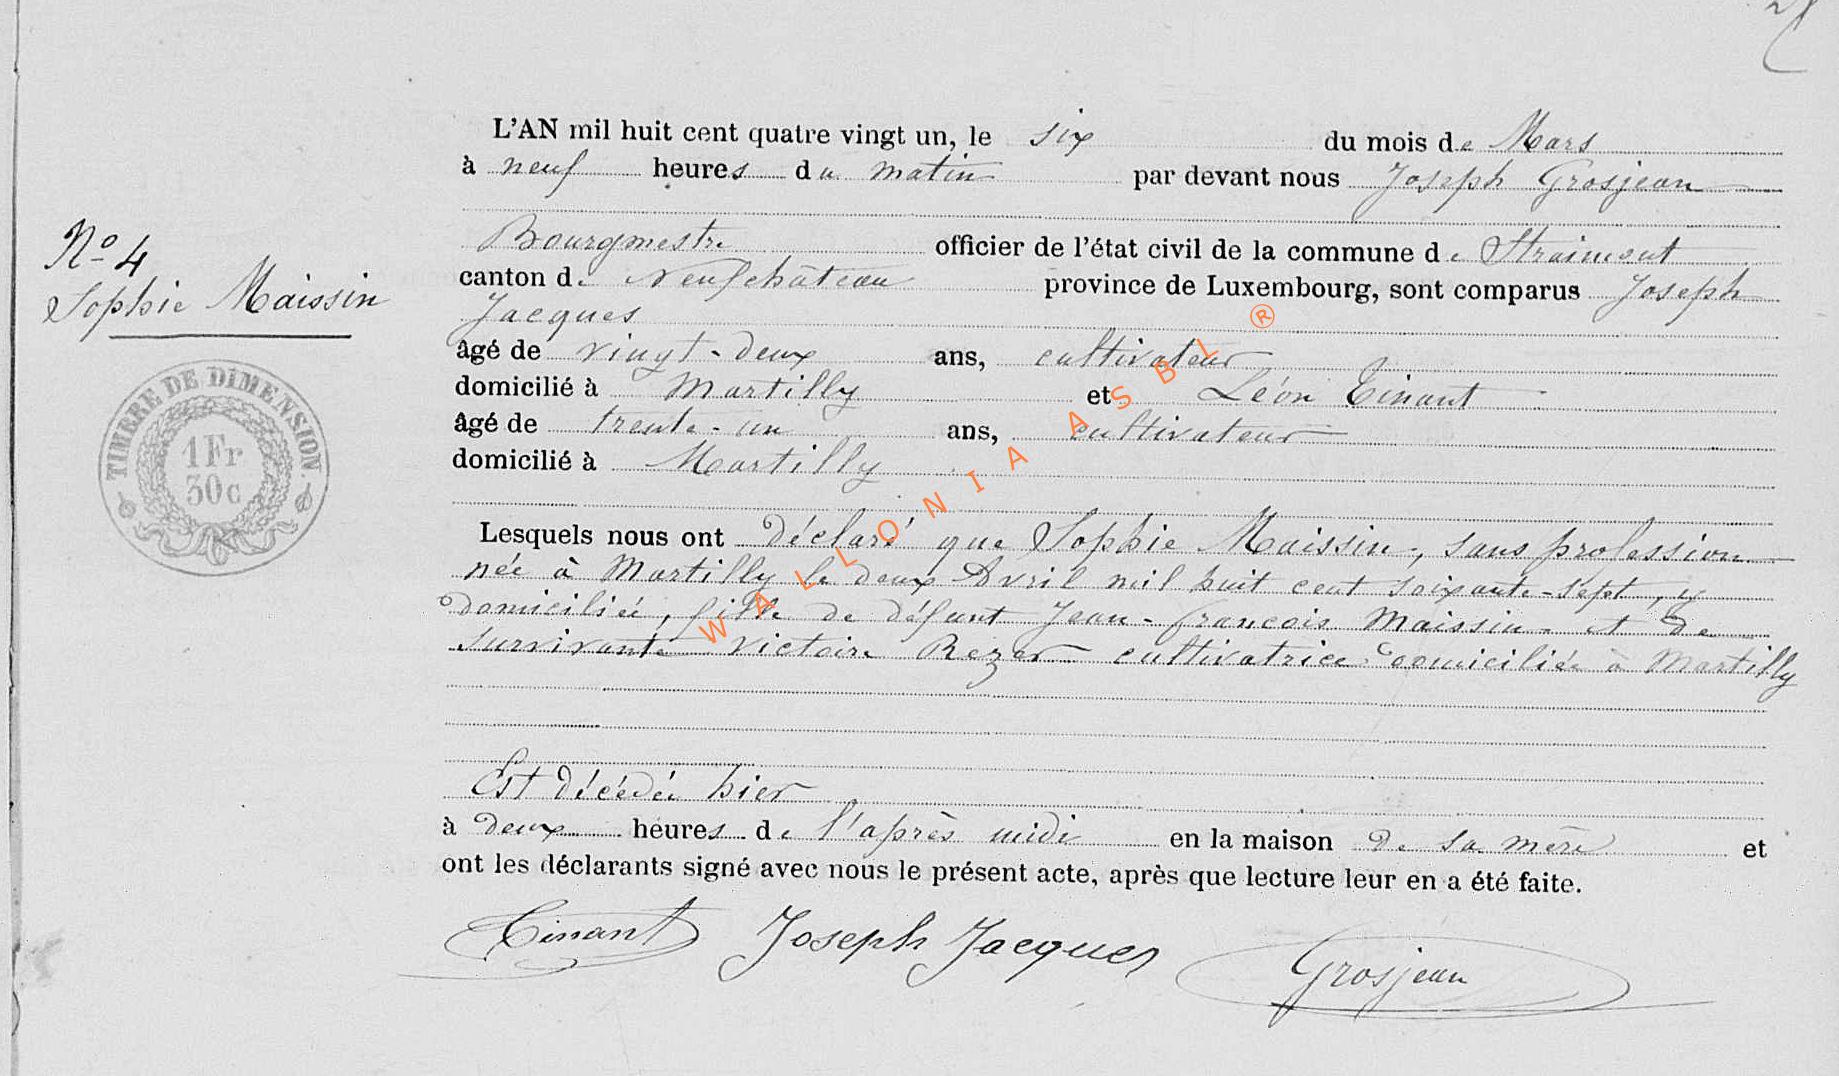 L'AN mil huit cent quatre vingt un, le six du mois de Mars
à neuf heures du matin par devant nous Joseph Grosjean
Bourgmestre officier de l'état civil de la commune de Straimont
canton de Neufchâteau province de Luxembourg, sont comparus Joseph
Jacques
âgé de vingt-deux ans, cultivateur
domicilié à Martilly et Léon Tinant
âgé de trente-un ans, cultivateur
domicilié à Martilly
Lesquels nous ont déclaré que Sophie Maissin, sans profession
née à Martilly le deux Avril mil huit cent soixante-sept, y
domiciliée, fille de défunt Jean-francois Maissin et de
survivante Victoire Rezer cultivatrice domiciliée à Martilly
Est décédée hier
à deux heures de l'après midi en la maison de sa mère et
ont les déclarants signé avec nous le présent acte, après que lecture leur en a été faite.
Tinant Joseph Jacques Grosjean
No 4
Sophie Maissin
TIMBRE DE DIMENSION
1 Fr
30c
WALLONIA ASBL ®